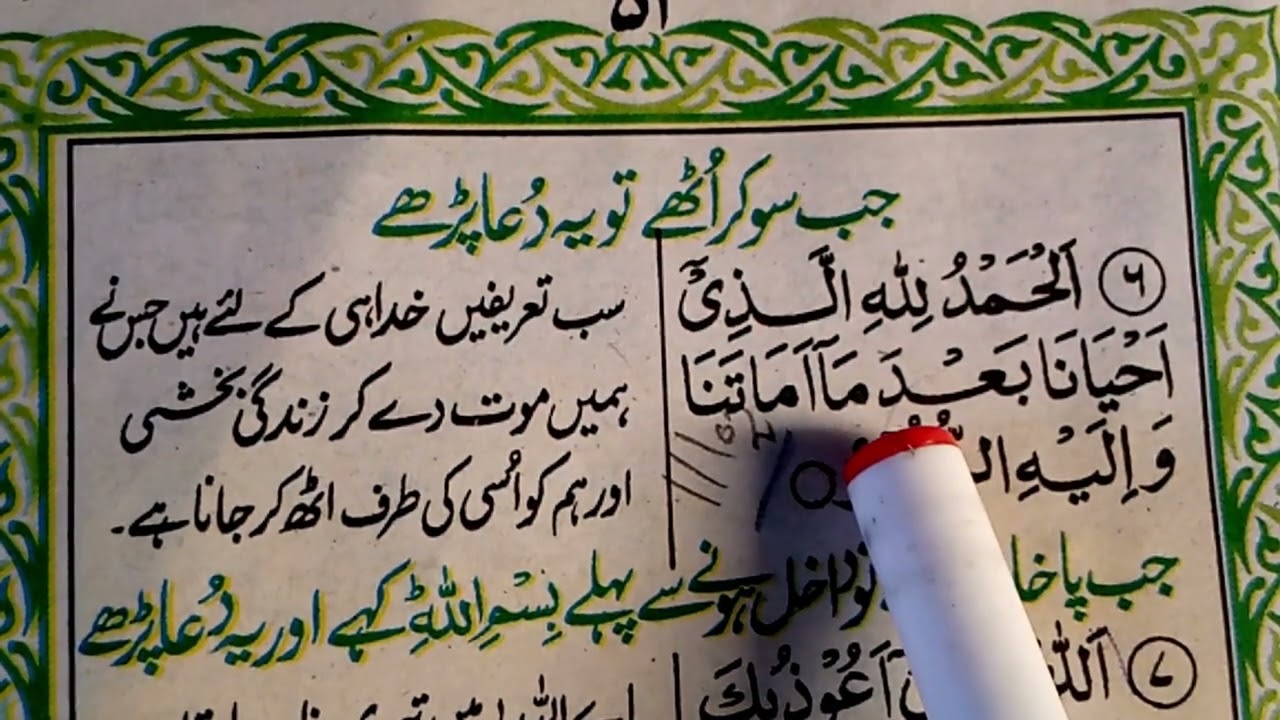 ۵۱
جب سو کر اُٹھے تو یہ دُعا پڑھے
۶ اَلْحَمْدُ لِلّٰهِ الَّذِیْٓ
اَحْیَانَا بَعْدَ مَآ اَمَاتَنَا
وَ اِلَیْهِ
سب تعریفیں خدا ہی کے لئے ہیں جس نے
ہمیں موت دے کر زندگی بخشی
اور ہم کو اُسی کی طرف اٹھ کر جانا ہے۔
جب داخل ہونے سے پہلے بِسْمِ اللّٰهِ کہے اور یہ دُعا پڑھے
۷ اَعُوْذُ بِكَ